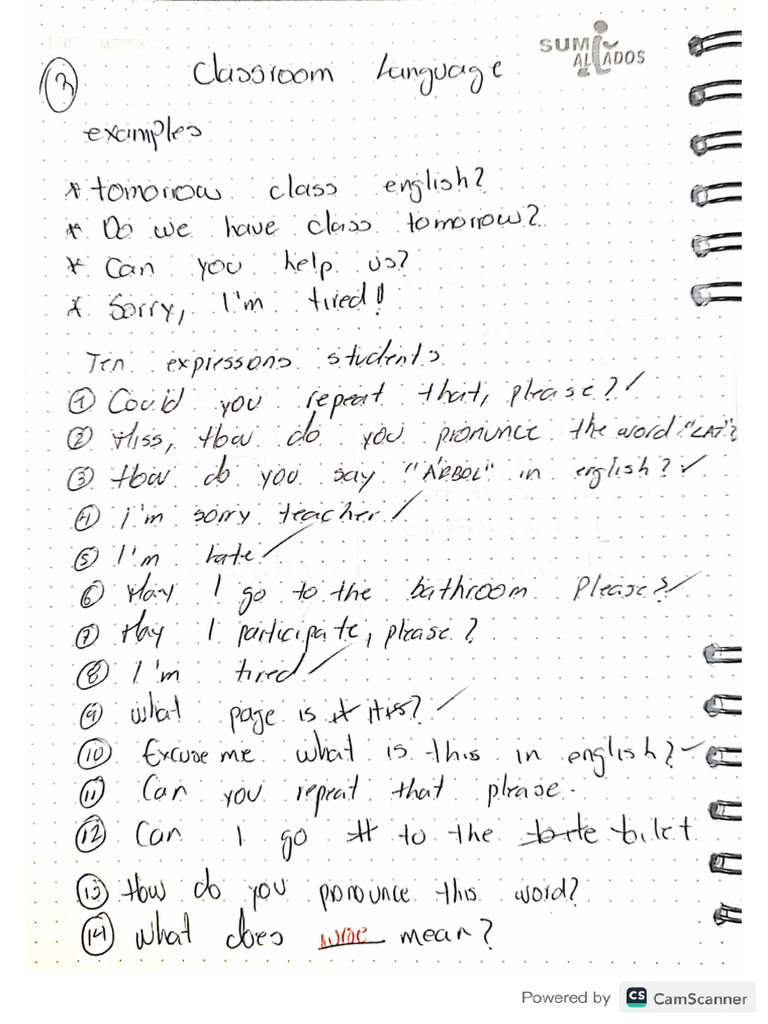 SUM
ALIADOS
3
Classroom Language
examples
* tomorrow class english?
* Do we have class tomorrow?
* Can you help us?
* Sorry, I'm tired!
Ten expressons students
① Could you repeat that, please? ✓
② Miss, How do you pronunce the word "CAT"?
③ How do you say "ÁRBOL" in english? ✓
④ I'm sorry teacher ✓
⑤ I'm late ✓
⑥ May I go to the bathroom Please? ✓
⑦ May I participate, please?
⑧ I'm tired ✓
⑨ what page is it ✓
⑩ Excuse me what is this in english? ✓
⑪ Can you repeat that please.
⑫ Can I go to the bilet
⑬ How do you pronounce this word?
⑭ what does mean?
Powered by CS CamScanner